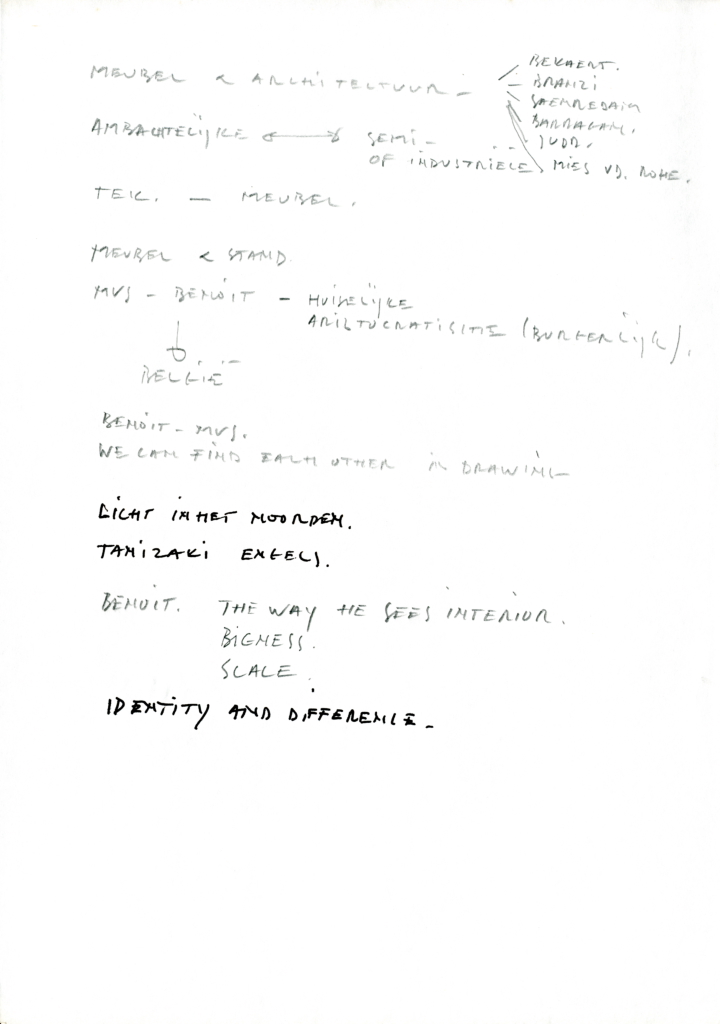 MEUBEL & ARCHITECTUUR -
BEKAERT.
BRANZI
SAENREDAM
BARRAGAN.
JUDD.
MIES VD. ROHE.
AMBACHTELIJKE ↔ SEMI-
OF INDUSTRIËLE
TEK. — MEUBEL.
MEUBEL & STAND.
MVS - BENOÎT - HUISELIJKE
ARISTOCRATISCHE (BURGERLIJK).
BELGIË
BENOÎT - MVS.
WE CAN FIND EACH OTHER IN DRAWING
LICHT IN HET NOORDEN.
TANIZAKI ENGELS.
BENOIT. THE WAY HE SEES INTERIOR.
BIGNESS.
SCALE.
IDENTITY AND DIFFERENCE -